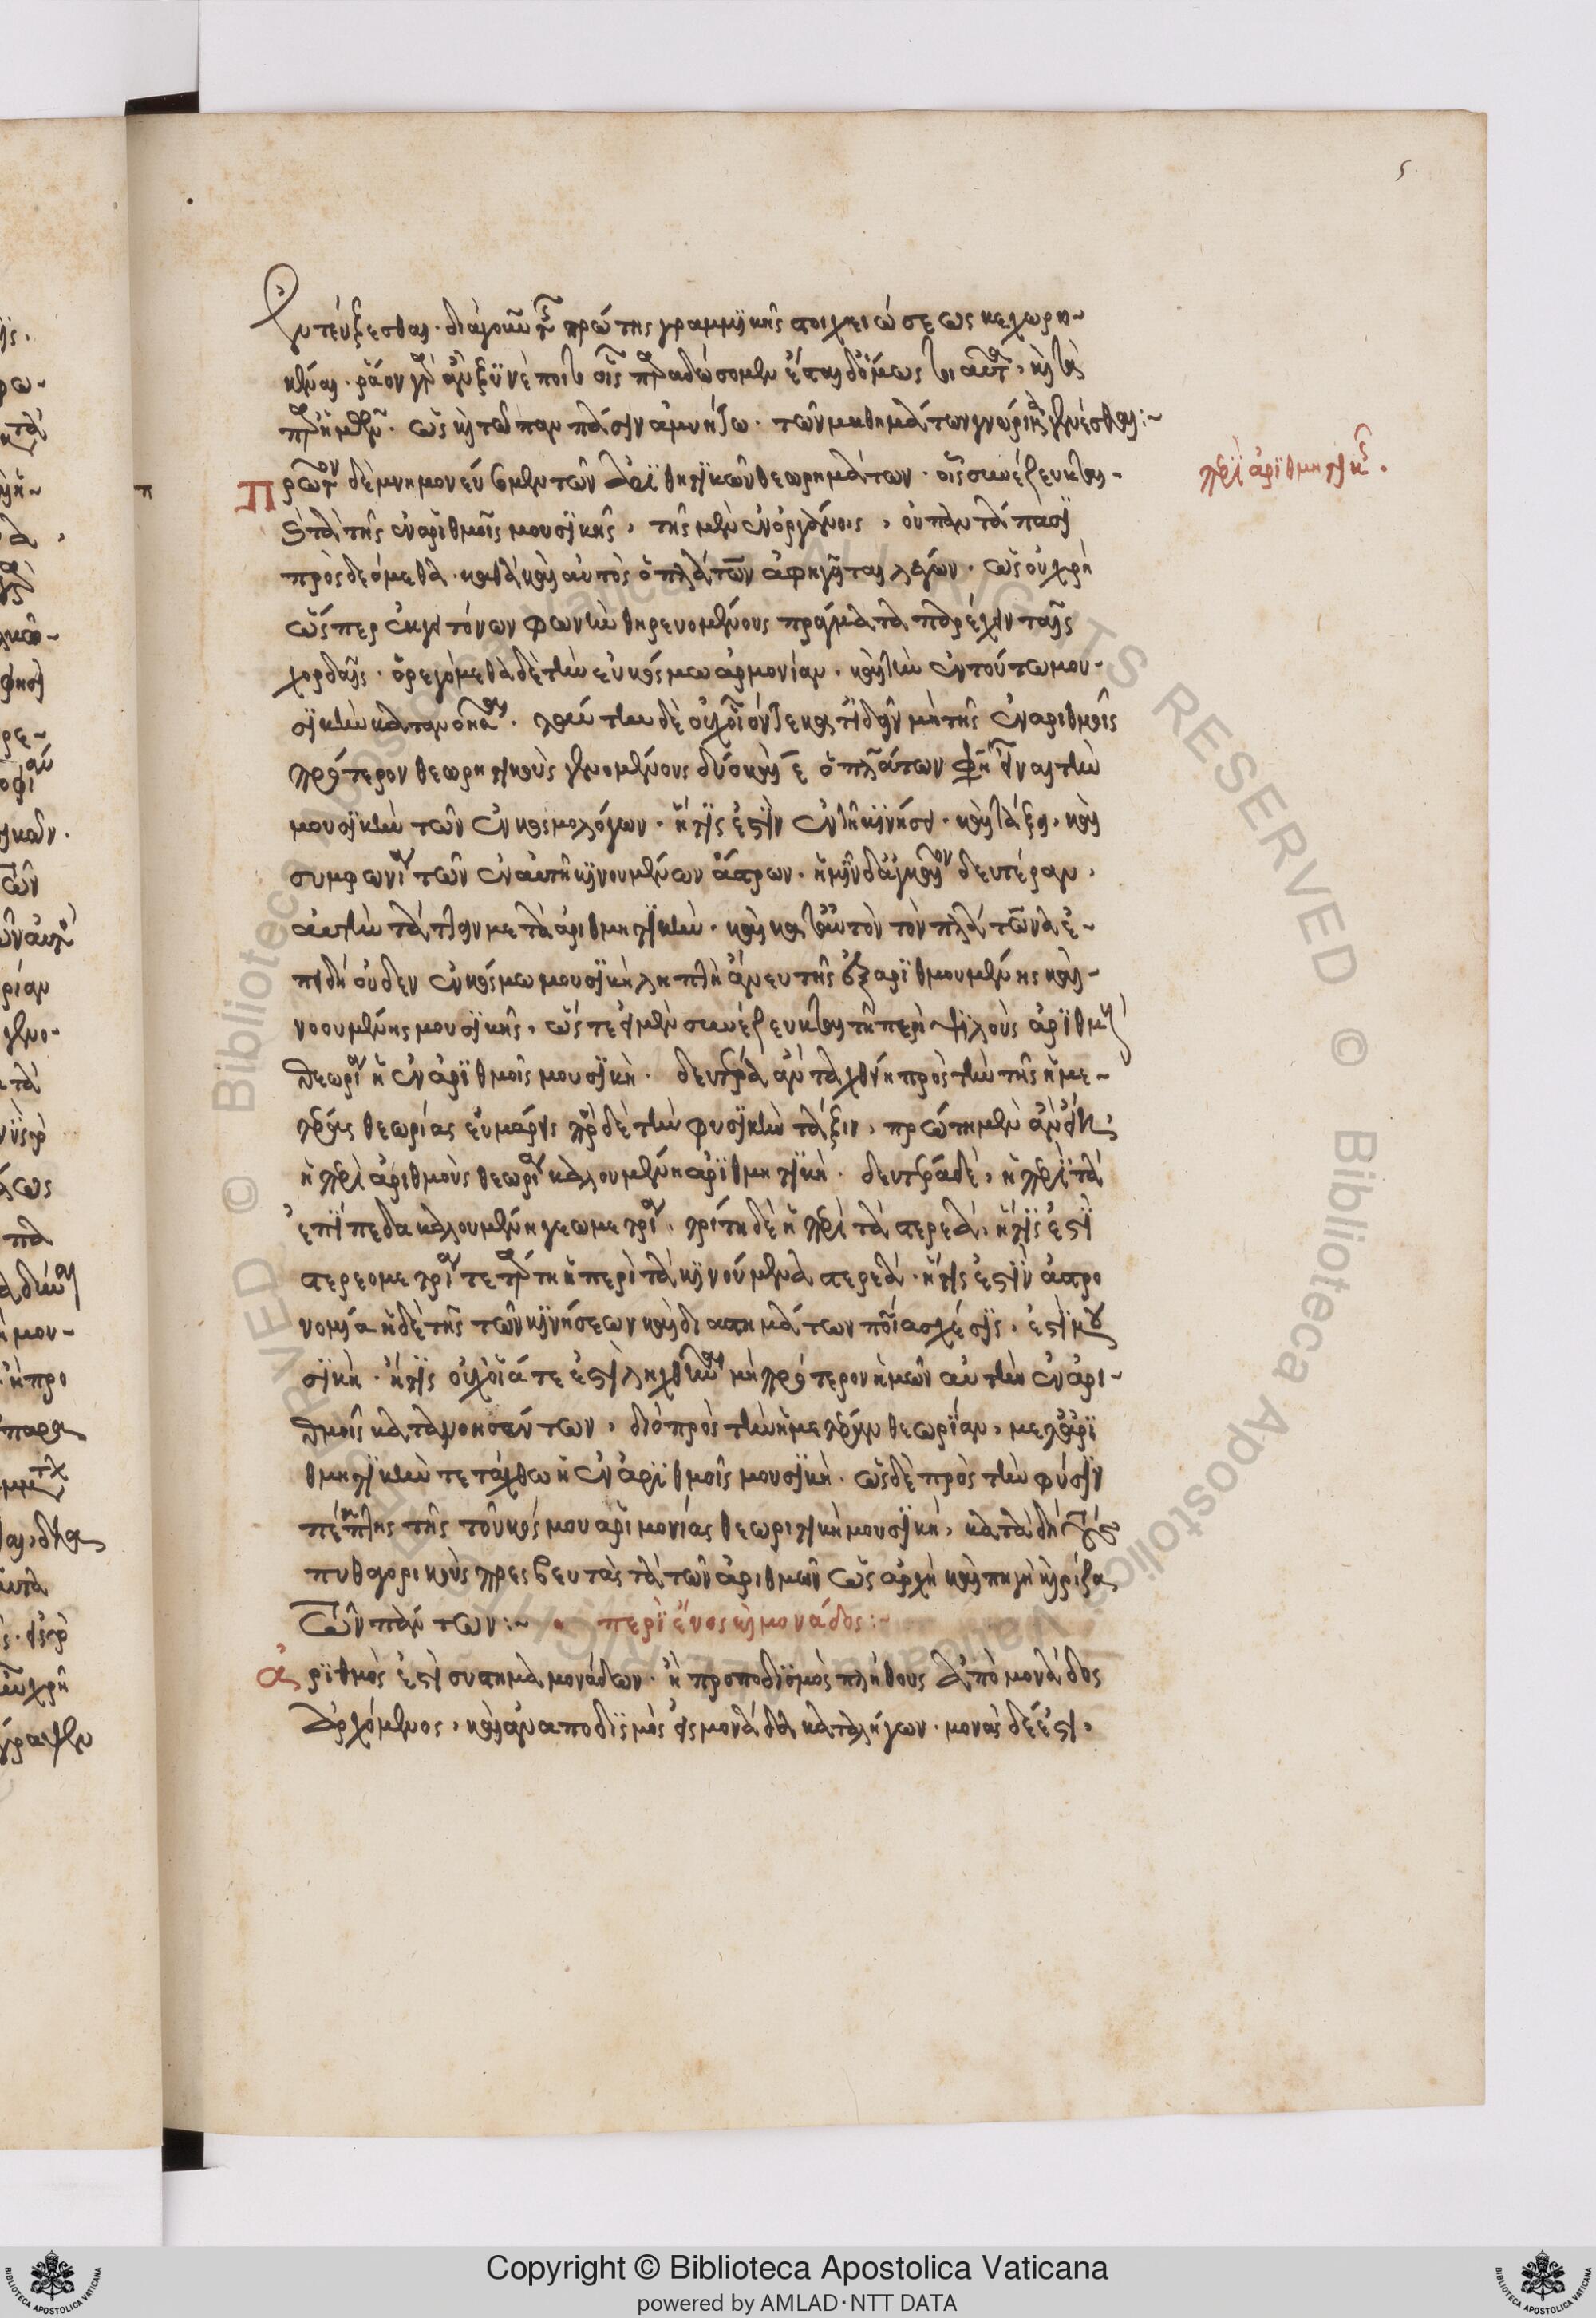 ἐντεύξεσθαι. διάγουν τῆς πρώτης γραμμϊκῆς στοιχειώσεως κεχωρη-
κέναι. ῥᾶον γὰρ ἂν ξϋνέποιτο οἷς παραδώσομεν ἔσται δ' ὅμως τοιαῦτα, καὶ τὰ
παρ' ἡμῶν. ὡς καὶ τῶ παντάπασιν ἀμυήτω. τῶν μαθημάτων γνώριμα γενέσθαι:~
περὶ ἀριθμητικῆς.
Πρῶτον δὲ μνημονεύσομεν τῶν ἀριθμητικῶν θεωρημάτων. οἷς συνέζευκται
καὶ τὰ τῆς ἐν ἀριθμοῖς μουσικῆς, τῆς μὲν ἐν ὀργάνοις, οὐ παντάπασι
προσδεόμεθα. καθὰ καὶ αὐτὸς ὁ πλάτων ἀφηγεῖται λέγων. ὡς οὐ χρὴ
ὥσπερ ἐκ γειτόνων φωνὴν θηρευομένους πράγματα παρέχειν ταῖς
χορδαῖς. ὀρεγόμεθα δὲ τὴν ἐν κόσμω ἁρμονίαν, καὶ τὴν ἐν τούτω μου-
σικὴν κατανοῆσαι. ταύτην δὲ οὐχ οἷόν τε κατιδεῖν μὴ τῆς ἐν ἀριθμοῖς
πρότερον θεωρητικοὺς γενομένους δϋὸ καὶ ε ὁ πλάτων φησὶν εἶναι τὴν
μουσικὴν τῶν ἐν κόσμο λόγων. ἥτις ἐστὶν ἐν τῆ κινήσει. καὶ τάξει, καὶ
συμφωνία τῶν ἐν αὐτῆ κινουμένων ἄστρων. ἡμῖν δ' ἀναγκαῖον δευτέραν,
αὐτὴν τάττειν μετὰ ἀριθμητικὴν. καὶ κατ' αὐτὸν τὸν πλάτωνα ἐ-
πειδὴ οὐδεν ἐν κόσμω μουσικὴ ληπτὴ ἄνευ τῆς ἐξαριθμουμένης καὶ
νοουμένης μουσικῆς, ὥστε εἰ μὲν συνέζευκται τῆ περὶ ψιλοὺς ἀριθμοὺς
θεωρία ἡ ἐν ἀριθμοῖς μουσικὴ. δευτέρα ἂν ταχθείη πρὸς τὴν τῆς ἡμε-
τέρας θεωρίας εὐμάρειαν πρὸς δὲ τὴν φυσικὴν τάξιν, πρώτη μὲν ἂν εἴη,
ἡ περὶ ἀριθμοὺς θεωρία καλουμένη ἀριθμητικὴ. δευτέρα δὲ, ἡ περὶ τὰ
ἐπίπεδα καλουμένη γεωμετρία, τρίτη δὲ ἡ περὶ τὰ στερεὰ, ἥτις ἐστὶ
στερεομετρία τετάρτη ἡ περὶ τὰ κινούμενα στερεὰ. ἥτις ἐστὶν ἀστρο
νομία ἡ δὲ τῆς τῶν κινήσεων καὶ διαστημάτων ποιὰ σχέσις, ἐστὶ μου
σικὴ. ἥτις οὐχ οἵα τε ἐστὶ ληφθῆναι μὴ πρότερον ἡμῶν αὐτὴν ἐν ἀρι-
θμοῖς κατανοησάντων, διὸ πρὸς τὴν ἡμετέραν θεωρίαν, μετ' ἀρι
θμητικὴν τετάχθω ἡ ἐν ἀριθμοῖς μουσικὴ. ὡς δὲ πρὸς τὴν φύσιν
πέμπτη τῆς τοῦ κόσμου ἁρμονίας θεωρητικὴ μουσικὴ, κατὰ δὴ τοὺς
πυθαγορικοὺς πρεσβευτὰς τὰ τῶν ἀριθμῶν ὡς ἀρχὴ καὶ πηγὴ καὶ ρίζα
τῶν πάντων:~ περὶ ἑνὸς καὶ μονάδος:~
ἀριθμὸς ἐστὶ σύστημα μονάδων. ἢ προποδισμὸς πλήθους ἀπὸ μονάδος
ἀρχόμενος, καὶ ἀναποδισμὸς εἰς μονάδα καταλήγων. μονὰς δέ ἐστι,
Copyright © Biblioteca Apostolica Vaticana
powered by AMLAD·NTT DATA